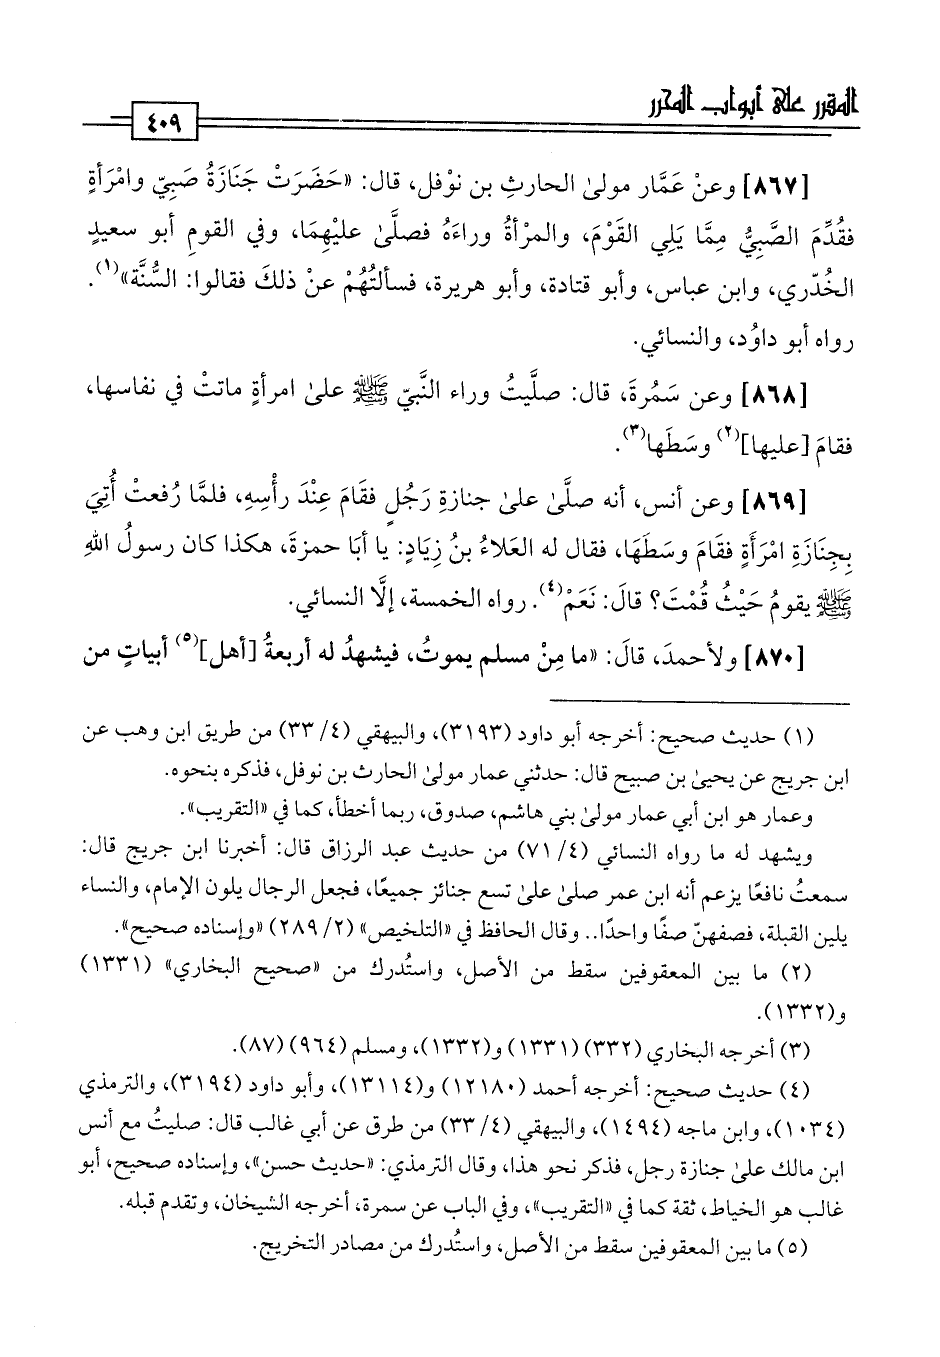 المقرر على أبواب المحرر
٤٠٩
[٨٦٧] وعنْ عَمَّار مولىٰ الحارثِ بن نوْفل، قال: «حَضَرَتْ جَنَازَةُ صَبِيّ وامْرَأةٍ
فقُدِّمَ الصَّبِيُّ مِمَّا يَلِي القَوْمَ، والمرْأةُ وراءَهُ فصلَّىٰ عليْهِمَا، وفي القومِ أبو سعيدٍ
الخُدّري، وابن عباس، وأبو قتادة، وأبو هريرة، فسألتُهُمْ عنْ ذلكَ فقالوا: السُّنَّة»(١).
رواه أبو داوُد، والنسائي.
[٨٦٨] وعن سَمُرةَ، قال: صليَّتُ وراء النَّبيّ ﷺ علىٰ امرأةٍ ماتتْ في نفاسها،
فقامَ [عليها](٢) وسَطَها(٣).
[٨٦٩] وعن أنس، أنه صلَّىٰ علىٰ جنازةِ رَجُلٍ فقَامَ عِنْدَ رأْسِهِ، فلمَّا رُفعتْ أُتِيَ
بِجِنَازَةِ امْرَأَةٍ فقَامَ وسَطَهَا، فقال له العَلاءُ بنُ زِيَادٍ: يا أبَا حمزةَ، هكذا كان رسولُ اللهِ
ﷺ يقومُ حَيْثُ قُمْتَ؟ قالَ: نَعَمْ(٤). رواه الخمسة، إلَّا النسائي.
[٨٧٠] ولأحمدَ، قالَ: «ما مِنْ مسلمٍ يموتُ، فيشهدُ له أربعةُ [أهل](٥) أبياتٍ من
(١) حديث صحيح: أخرجه أبو داود (٣١٩٣)، والبيهقي (٤/ ٣٣) من طريق ابن وهب عن
ابن جريج عن يحيىٰ بن صبيح قال: حدثني عمار مولىٰ الحارث بن نوفل، فذكره بنحوه.
وعمار هو ابن أبي عمار مولىٰ بني هاشم، صدوق، ربما أخطأ، كما في «التقريب».
ويشهد له ما رواه النسائي (٤/ ٧١) من حديث عبد الرزاق قال: أخبرنا ابن جريج قال:
سمعتُ نافعًا يزعم أنه ابن عمر صلىٰ علىٰ تسع جنائز جميعًا، فجعل الرجال يلون الإمام، والنساء
يلين القبلة، فصفهنّ صفًا واحدًا.. وقال الحافظ في «التلخيص» (٢/ ٢٨٩) «وإسناده صحيح».
(٢) ما بين المعقوفين سقط من الأصل، واستُدرك من «صحيح البخاري» (١٣٣١)
و(١٣٣٢).
(٣) أخرجه البخاري (٣٣٢) (١٣٣١) و(١٣٣٢)، ومسلم (٩٦٤) (٨٧).
(٤) حديث صحيح: أخرجه أحمد (١٢١٨٠) و(١٣١١٤)، وأبو داود (٣١٩٤)، والترمذي
(١٠٣٤)، وابن ماجه (١٤٩٤)، والبيهقي (٤/ ٣٣) من طرق عن أبي غالب قال: صليتُ مع أنس
ابن مالك علىٰ جنازة رجل، فذكر نحو هذا، وقال الترمذي: «حديث حسن»، وإسناده صحيح، أبو
غالب هو الخياط، ثقة كما في «التقريب»، وفي الباب عن سمرة، أخرجه الشيخان، وتقدم قبله.
(٥) ما بين المعقوفين سقط من الأصل، واستُدرك من مصادر التخريج.